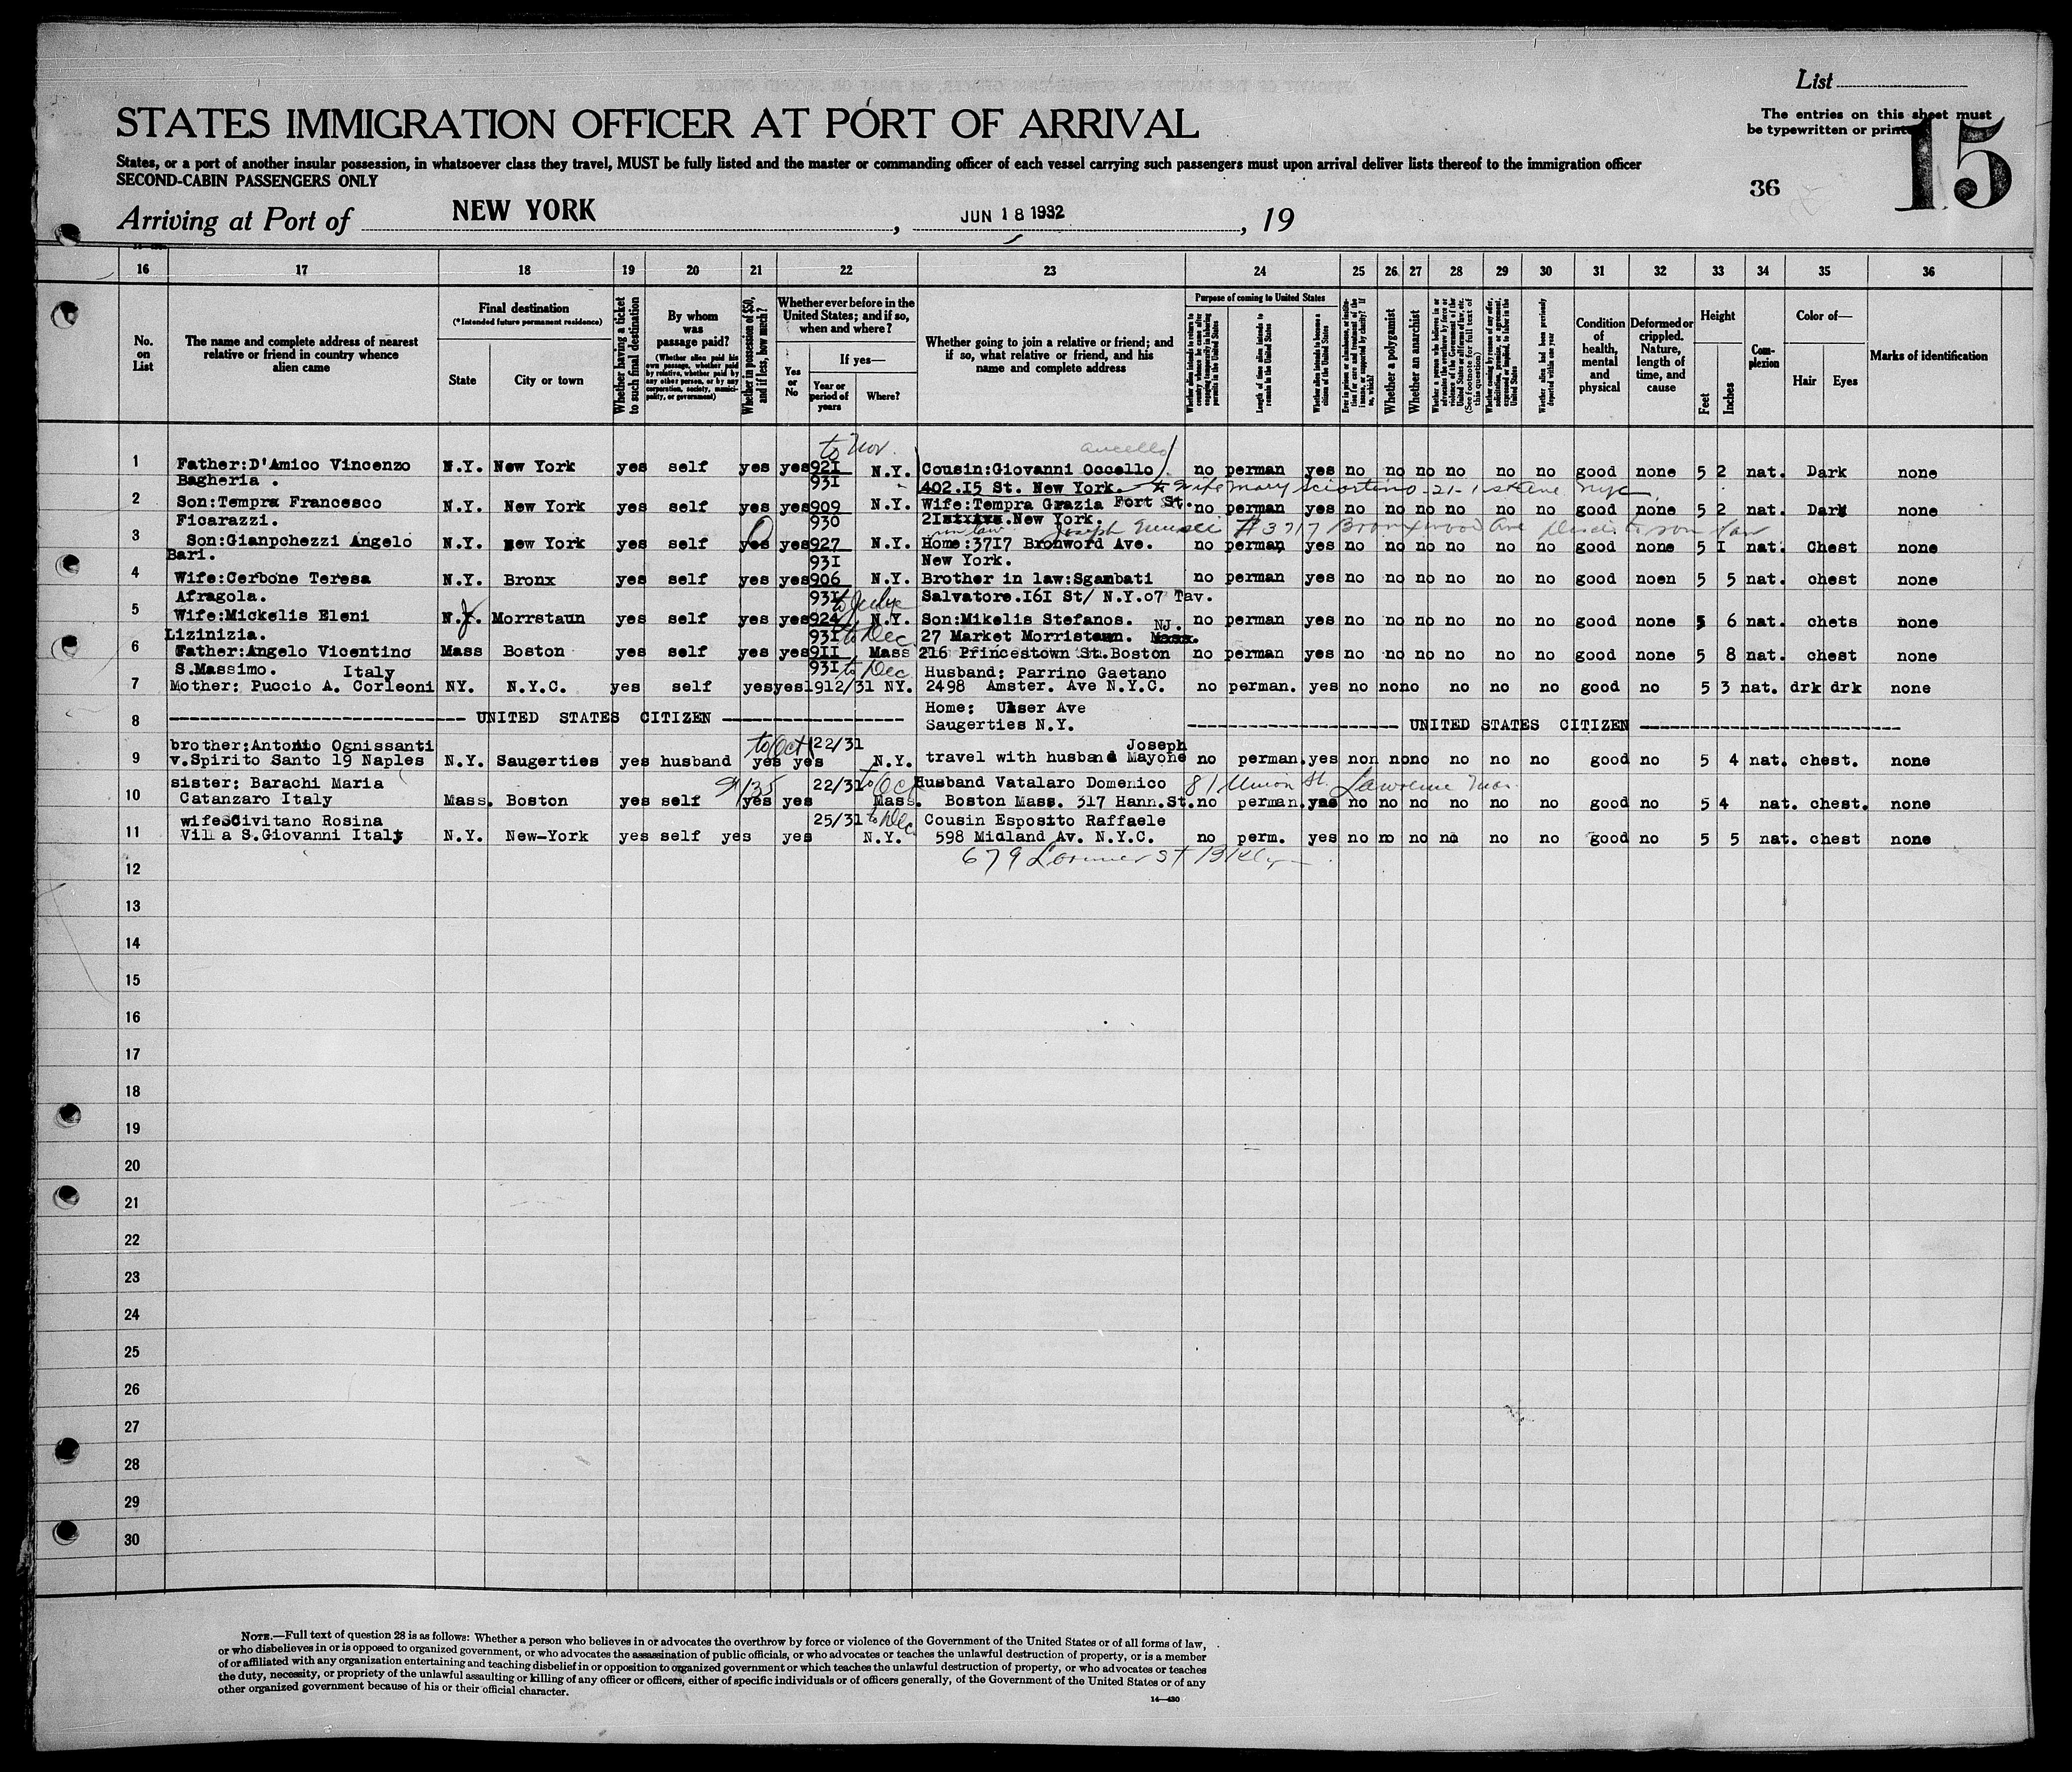 List
STATES IMMIGRATION OFFICER AT PORT OF ARRIVAL
The entries on this sheet must
be typewritten or printed
15
States, or a port of another insular possession, in whatsoever class they travel, MUST be fully listed and the master or commanding officer of each vessel carrying such passengers must upon arrival deliver lists thereof to the immigration officer
SECOND-CABIN PASSENGERS ONLY
36
Arriving at Port of NEW YORK , JUN 18 1932 , 19
16 17 18 19 20 21 22 23 24 25 26 27 28 29 30 31 32 33 34 35 36
No. on List
The name and complete address of nearest relative or friend in country whence alien came
Final destination
(*Intended future permanent residence)
State
City or town
Whether having a ticket to such final destination
By whom was passage paid?
(Whether alien paid his own passage, whether paid by relative, whether paid by any other person, or by any corporation, society, municipality, or government)
Whether in possession of $50, and if less, how much?
Whether ever before in the United States; and if so, when and where?
Yes or No
If yes—
Year or period of years
Where?
Whether going to join a relative or friend; and if so, what relative or friend, and his name and complete address
Purpose of coming to United States
Whether alien intends to return to country whence he came after engaging temporarily in laboring pursuits in the United States
Length of time alien intends to remain in the United States
Whether alien intends to become a citizen of the United States
Ever in prison or almshouse, or institution for care and treatment of the insane, or supported by charity? If so, which?
Whether a polygamist
Whether an anarchist
Whether a person who believes in or advocates the overthrow by force or violence of the Government of the United States or all forms of law, etc. (See footnote for full text of this question)
Whether coming by reason of any offer, solicitation, promise, or agreement, expressed or implied, to labor in the United States
Whether alien had been previously deported within one year
Condition of health, mental and physical
Deformed or crippled. Nature, length of time, and cause
Height
Feet
Inches
Complexion
Color of—
Hair
Eyes
Marks of identification
to Nov. Aucello
1 Father:D'Amico Vincenzo N.Y. New York yes self yes yes 921 N.Y. Cousin:Giovanni Occello no perman yes no no no no no no good none 5 2 nat. Dark none
Bagheria . 931 402.I5 St. New York. to wife Mary Sciortino -21-1st Ave NYC
2 Son:Tempra Francesco N.Y. New York yes self yes yes 909 N.Y. Wife:Tempra Grazia Fort St. no perman yes no no no no no no good none 5 2 nat. Dark none
Ficarazzi. 930 2I New York. Joseph #3717 Bronxwood Ave
3 Son:Gianpchezzi Angelo N.Y. New York yes self 0 yes 927 N.Y. Home:37I7 Bronword Ave. no perman yes no no no no no no good none 5 I nat. Chest none
Bari. 93I New York.
4 Wife:Cerbone Teresa N.Y. Bronx yes self yes yes 906 N.Y. Brother in law:Sgambati no perman yes no no no no no no good noen 5 5 nat. chest none
Afragola. 93I to July Salvatore.I6I St/ N.Y.o7 Tav.
5 Wife:Mickelis Eleni N.J. Morrstaun yes self yes yes 924 N.Y. Son:Mikelis Stefanos. NJ. no perman yes no no no no no no good none 5 6 nat. chets none
Lizinizia. 93I to Dec 27 Market Morristown. Mass.
6 Father:Angelo Vicentino Mass Boston yes self yes yes 9II Mass 2I6 Princestown St.Boston no perman yes no no no no no no good none 5 8 nat. chest none
S.Massimo. Italy 93I to Dec Husband: Parrino Gaetano
7 Mother: Puccio A. Corleoni NY. N.Y.C. yes self yes yes 1912/31 NY. 2498 Amster. Ave N.Y.C. no perman. yes no no no no no no good no 5 3 nat. drk drk none
Home: Ulser Ave
8 UNITED STATES CITIZEN Saugerties N.Y. UNITED STATES CITIZEN
brother:Antonio Ognissanti to Oct 22/31 Joseph
9 v.Spirito Santo 19 Naples N.Y. Saugerties yes husband yes yes N.Y. travel with husband Mayone no perman. yes non no no no no no good no 5 4 nat. chest. none
sister: Barachi Maria $135 22/31 to Oct Husband Vatalaro Domenico 81 Union St. Lawrence Mas.
10 Catanzaro Italy Mass. Boston yes self yes yes Mass. Boston Mass. 317 Hann.St. no perman. yes no no no no no no good no 5 4 nat. chest. none
wifeSCivitano Rosina 25/31 to Dec Cousin Esposito Raffaele
11 Villa S.Giovanni Italy N.Y. New-York yes self yes yes N.Y. 598 Midland Av. N.Y.C. no perm. yes no no no no no no good no 5 5 nat. chest none
12 679 Lorimer St Bklyn
13
14
15
16
17
18
19
20
21
22
23
24
25
26
27
28
29
30
NOTE.—Full text of question 28 is as follows: Whether a person who believes in or advocates the overthrow by force or violence of the Government of the United States or of all forms of law,
or who disbelieves in or is opposed to organized government, or who advocates the assassination of public officials, or who advocates or teaches the unlawful destruction of property, or is a member
of or affiliated with any organization entertaining and teaching disbelief in or opposition to organized government or which teaches the unlawful destruction of property, or who advocates or teaches
the duty, necessity, or propriety of the unlawful assaulting or killing of any officer or officers, either of specific individuals or of officers generally, of the Government of the United States or of any
other organized government because of his or their official character.
14—430